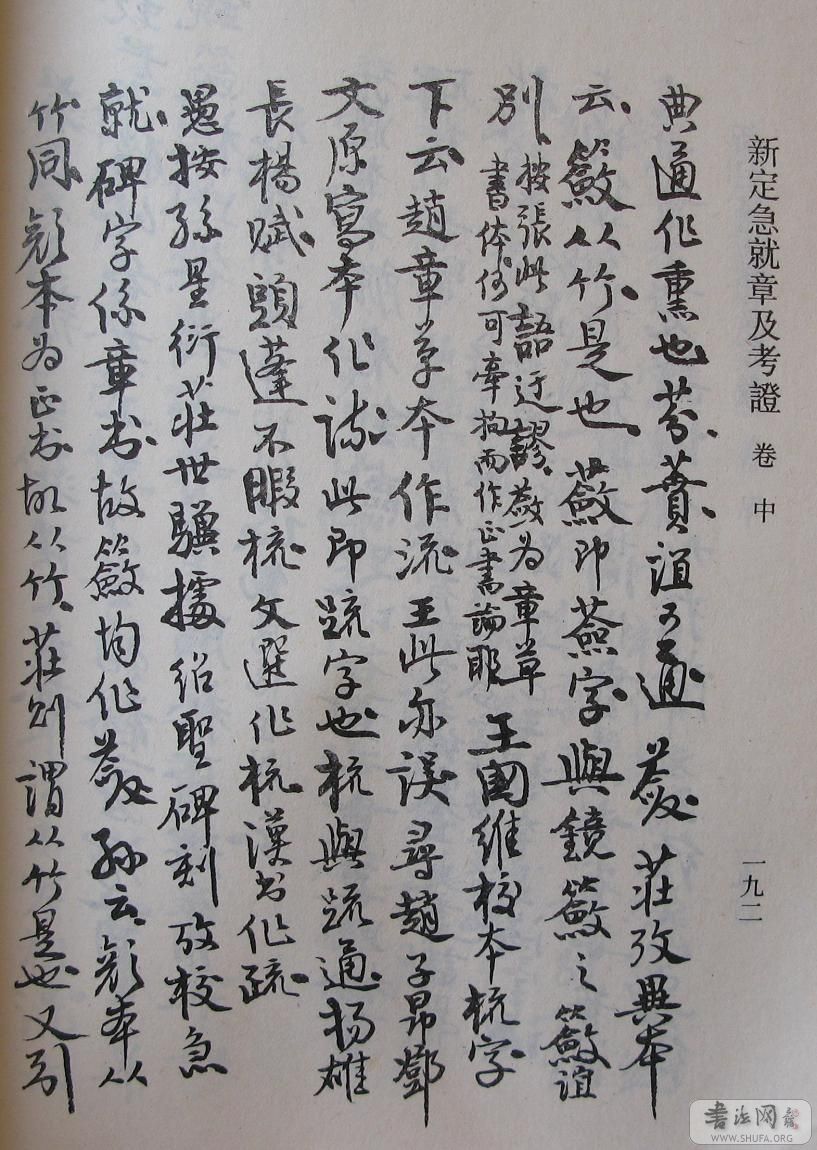 新定急就章及考證 卷中 一九二
典通作熏也芬蕡誼可通 蘞 莊攷異本
云籢从竹是也蘞即薟字與鏡籢之籢誼
別按張此語迂謬蘞為章草書体何可牽拘而作正書論耶王國維校本梳字
下云趙章草本作流王此亦誤尋趙子昂鄧
文原寫本作疏此即疏字也梳與疏通揚雄
長楊賦頭蓬不暇梳文選作梳漢書作疏
愚按孫星衍莊世驥據紹聖碑刻攷校急
就碑字係章書故籢均作蘞孫云顏本从
竹同顏本為正書故从竹莊則謂从竹是也又引
書法网
WWW.SHUFA.ORG